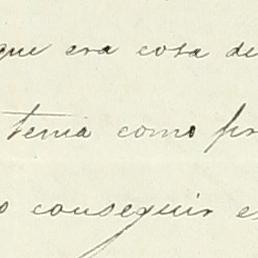 que era cosa de
tenia como pr
o conseguir e